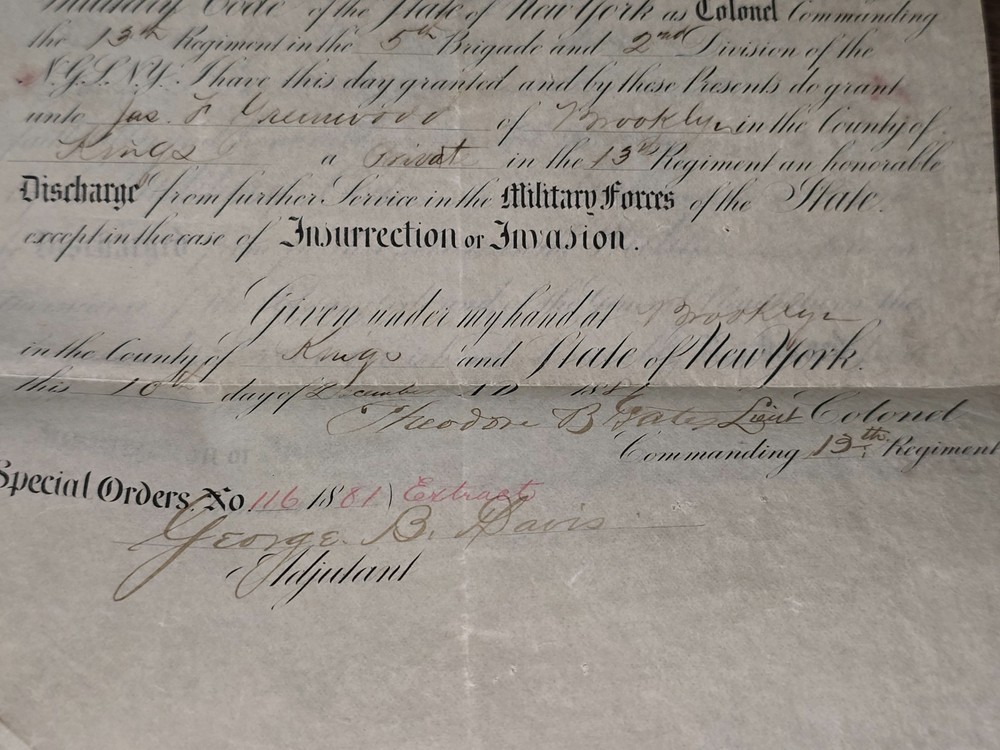 Military Code of the State of New York as Colonel Commanding
the 13th Regiment in the 5th Brigade and 2nd Division of the
N.G.S.N.Y. I have this day granted and by these Presents do grant
unto Jas. F Greenwood of Brooklyn in the County of
Kings a Private in the 13th Regiment an honorable
Discharge from further Service in the Military Forces of the State.
except in the case of Insurrection or Invasion.
Given under my hand at Brooklyn
in the County of Kings and State of New York.
this 10th day of December AD 1881
Theodore B Gates Lieut Colonel
Commanding 13th Regiment
Special Orders No 116 1881) Extract
George B. Davis
Adjutant